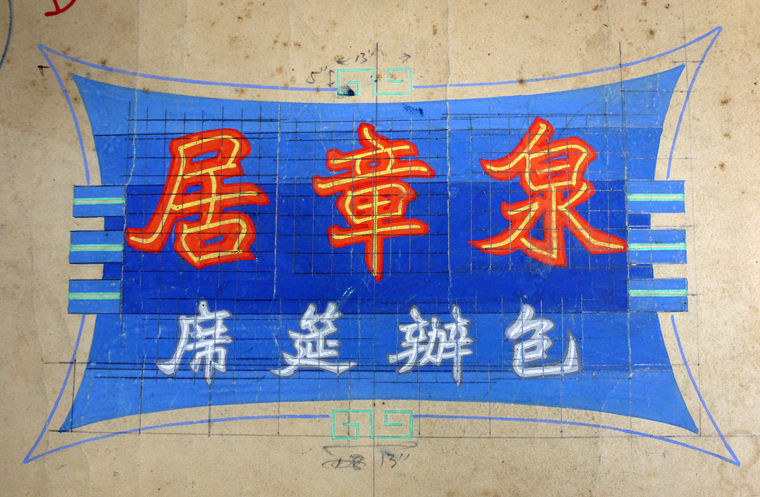 13"
5"
泉章居
包辦筵席
13"